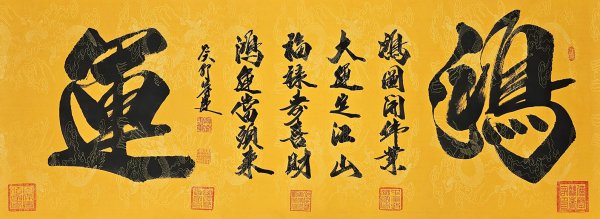 鴻
鴻圖開伟業
大運定江山
福祿壽喜財
鴻運當頭來
癸卯
運